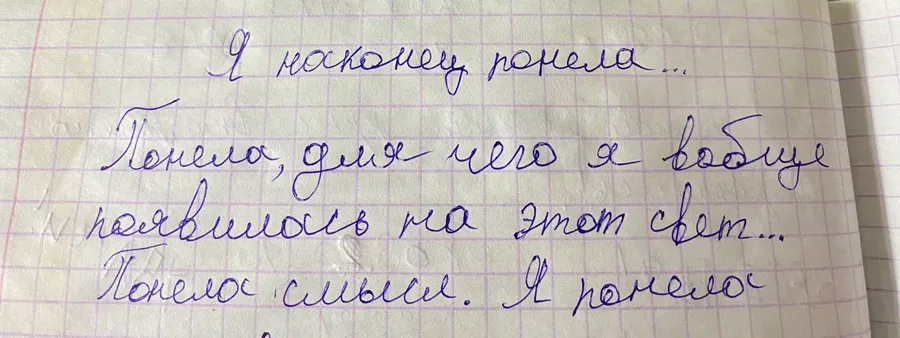 Я наконец понела...
Понела, для чего я вобще
появилась на этот свет...
Понела смысл. Я понела